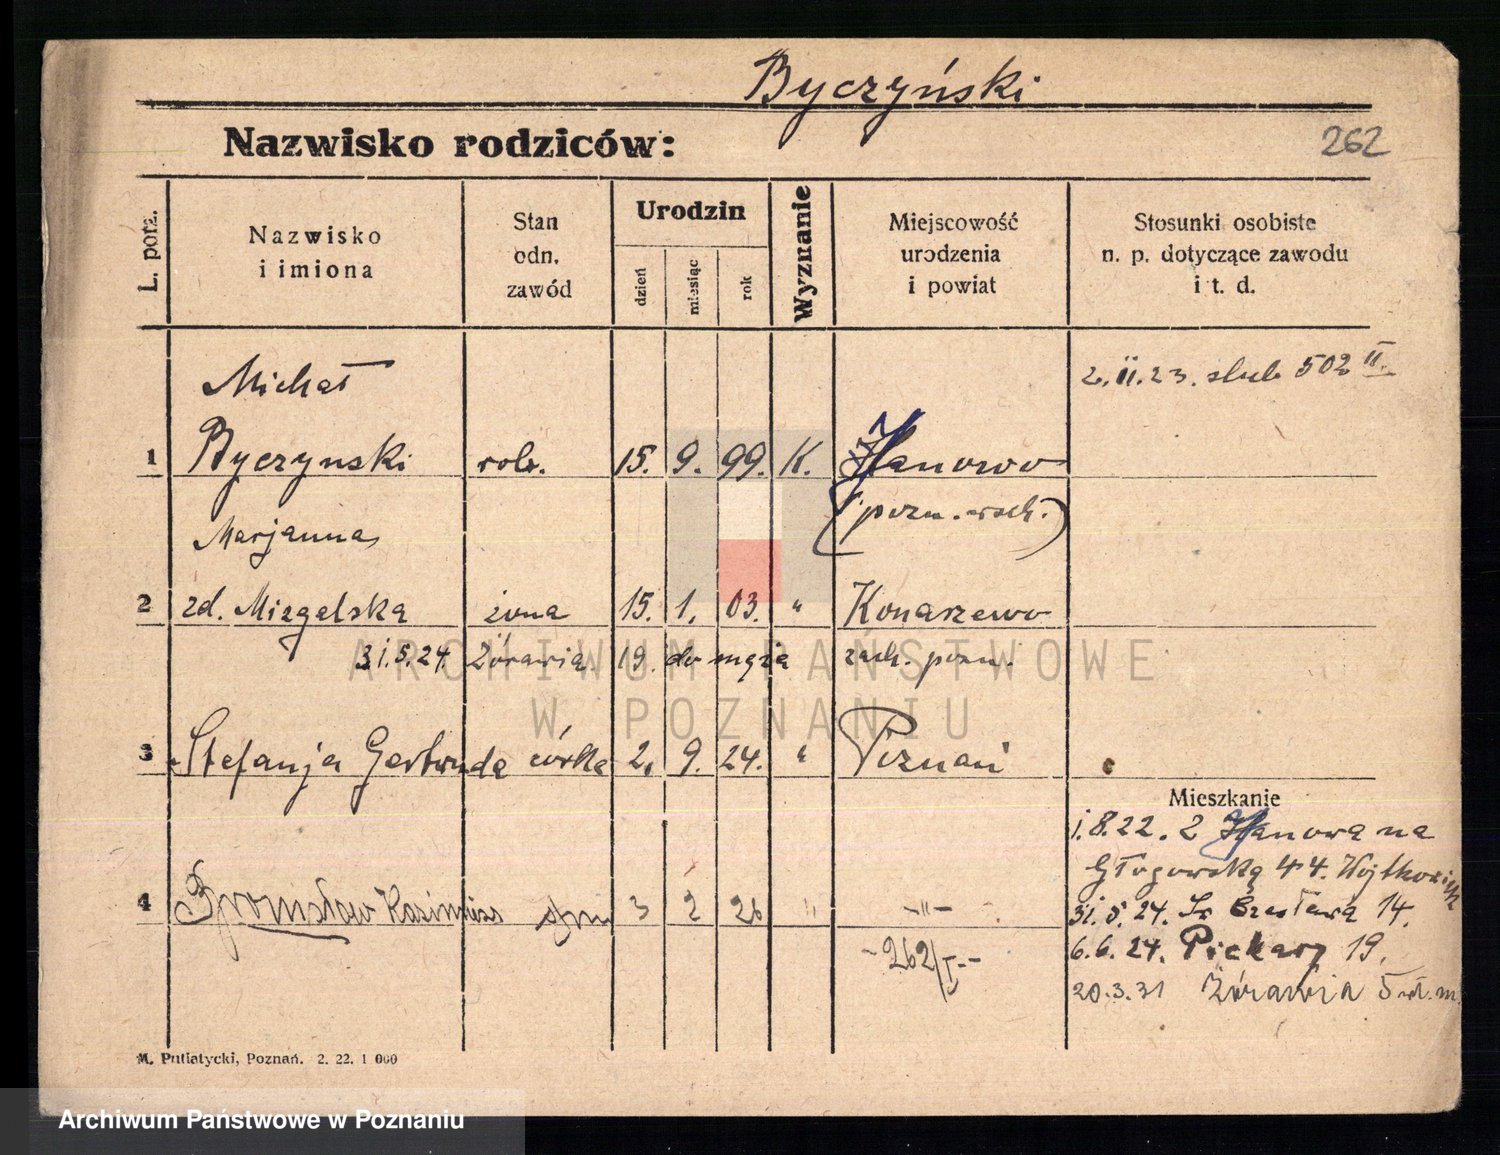 Byczyński
Nazwisko rodziców:
262
L. porz.
Nazwisko
i imiona
Stan
odn.
zawód
Urodzin
dzień
miesiąc
rok
Wyznanie
Miejscowość
urodzenia
i powiat
Stosunki osobiste
n. p. dotyczące zawodu
i t. d.
Michał
2.II.23. ślub 502 II.
1 Byczynski rob. 15. 9. 99. K. Hanowo
(pozn. wsch.)
Marjanna
2 zd. Mizgalska żona 15. 1. 03. " Konarzewo
31.5.24. Żórawia 19. do męża zach. pozn.
3 Stefanja Gertruda córka 2. 9. 24. " Poznań
Mieszkanie
1.8.22. z Hanowa na
Głogowską 44.
4 Bronisław Kazimierz syn 3 2 26 " -"-
31.5.24. Czesława 14.
6.6.24. Piekary 19.
-262/I--
20.3.31 Żórawia 5
M. Putiatycki, Poznań. 2. 22. 1 000
ARCHIWUM PAŃSTWOWE
W POZNANIU
Archiwum Państwowe w Poznaniu